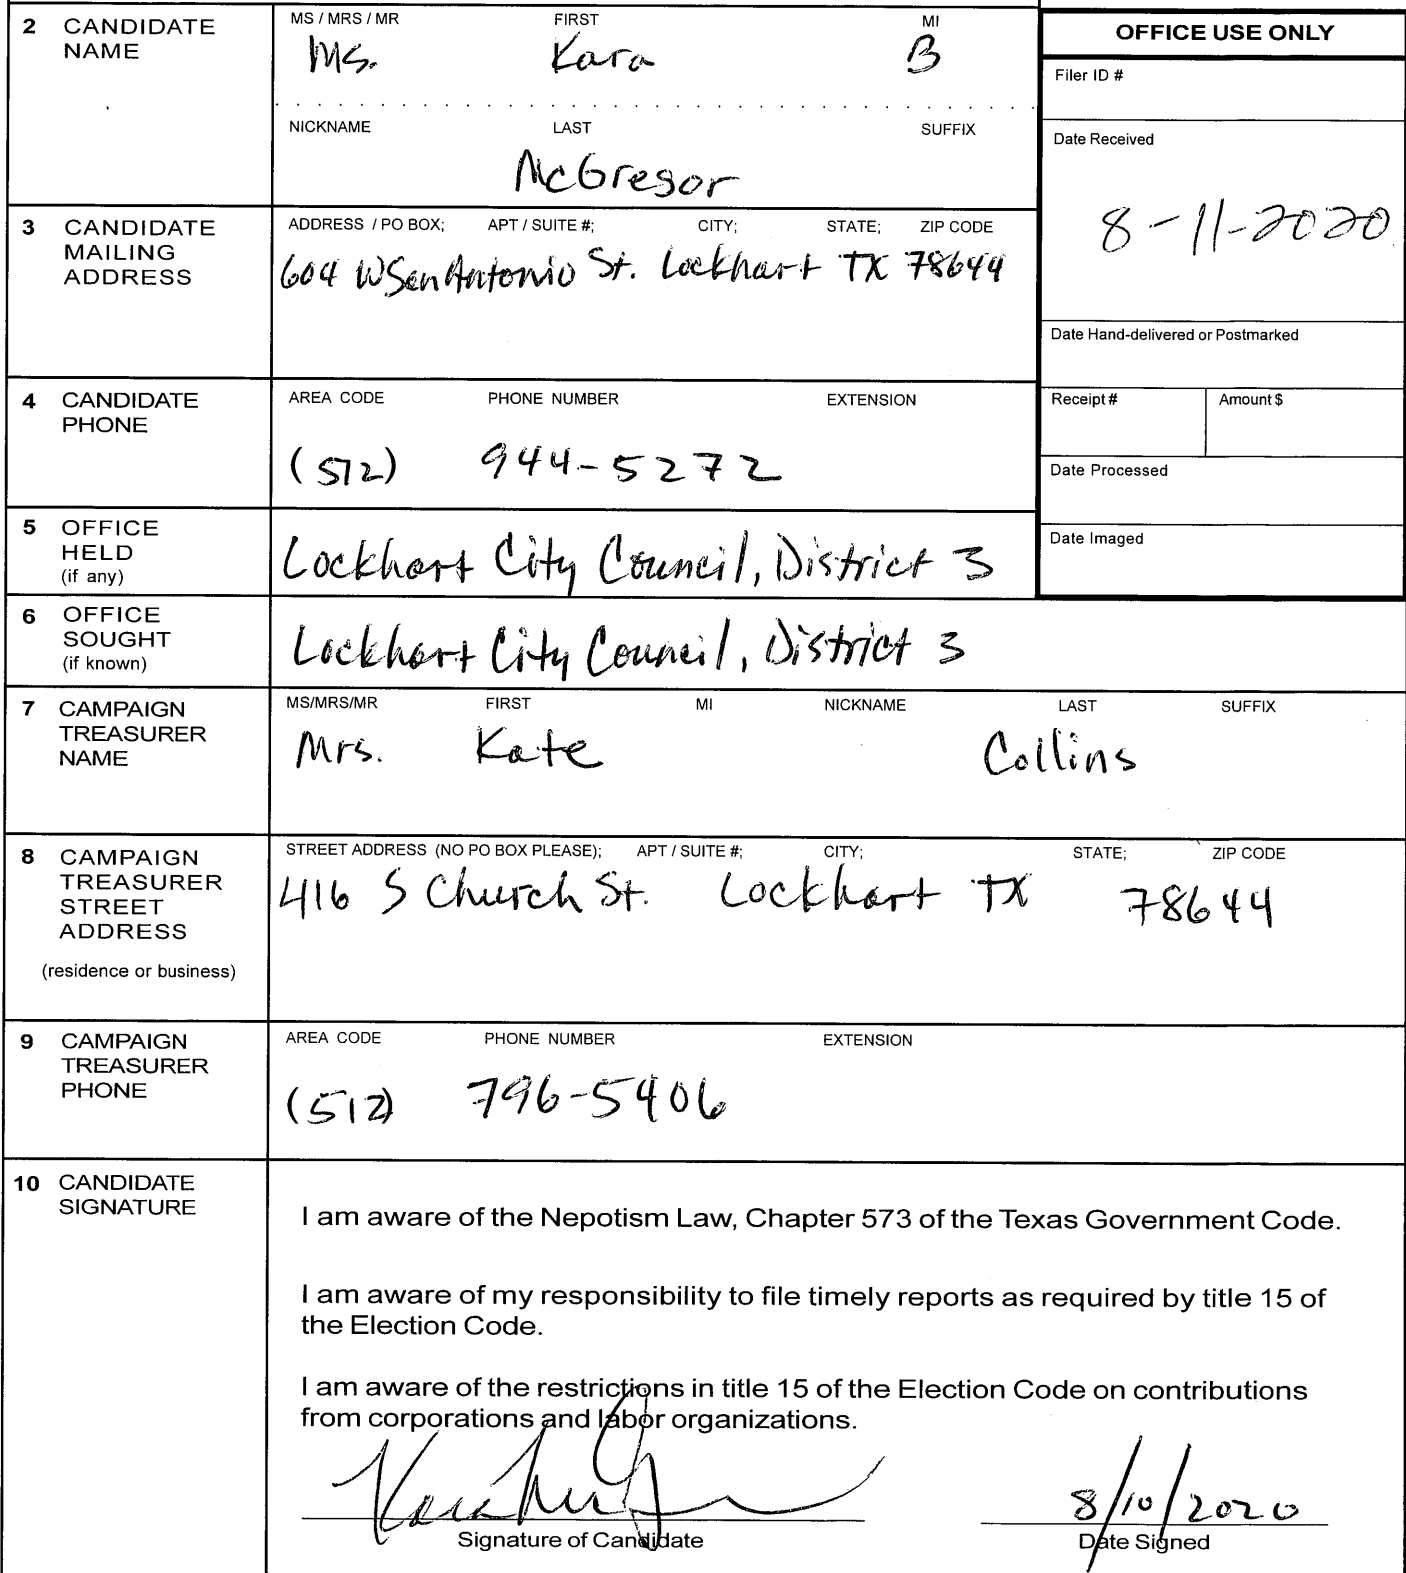 2 CANDIDATE NAME
MS / MRS / MR FIRST MI
Ms. Kara B
NICKNAME LAST SUFFIX
McGregor
OFFICE USE ONLY
Filer ID #
Date Received
8-11-2020
Date Hand-delivered or Postmarked
Receipt # Amount $
Date Processed
Date Imaged
3 CANDIDATE MAILING ADDRESS
ADDRESS / PO BOX; APT / SUITE #; CITY; STATE; ZIP CODE
604 W San Antonio St. Lockhart TX 78644
4 CANDIDATE PHONE
AREA CODE PHONE NUMBER EXTENSION
(512) 944-5272
5 OFFICE HELD (if any)
Lockhart City Council, District 3
6 OFFICE SOUGHT (if known)
Lockhart City Council, District 3
7 CAMPAIGN TREASURER NAME
MS/MRS/MR FIRST MI NICKNAME LAST SUFFIX
Mrs. Kate Collins
8 CAMPAIGN TREASURER STREET ADDRESS
(residence or business)
STREET ADDRESS (NO PO BOX PLEASE); APT / SUITE #; CITY; STATE; ZIP CODE
416 S Church St. Lockhart TX 78644
9 CAMPAIGN TREASURER PHONE
AREA CODE PHONE NUMBER EXTENSION
(512) 796-5406
10 CANDIDATE SIGNATURE
I am aware of the Nepotism Law, Chapter 573 of the Texas Government Code.
I am aware of my responsibility to file timely reports as required by title 15 of
the Election Code.
I am aware of the restrictions in title 15 of the Election Code on contributions
from corporations and labor organizations.
8/10/2020
Signature of Candidate Date Signed